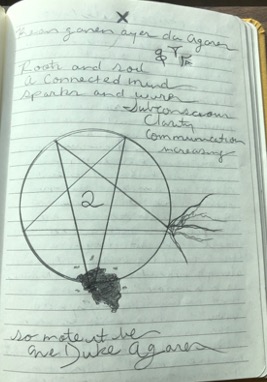 X
ayer Agares
Roots and soil
a Connected mind
sparks and wires
-Subconscious
Clarity
Communication
increasing
2
so mote it be
ave Duke Agares